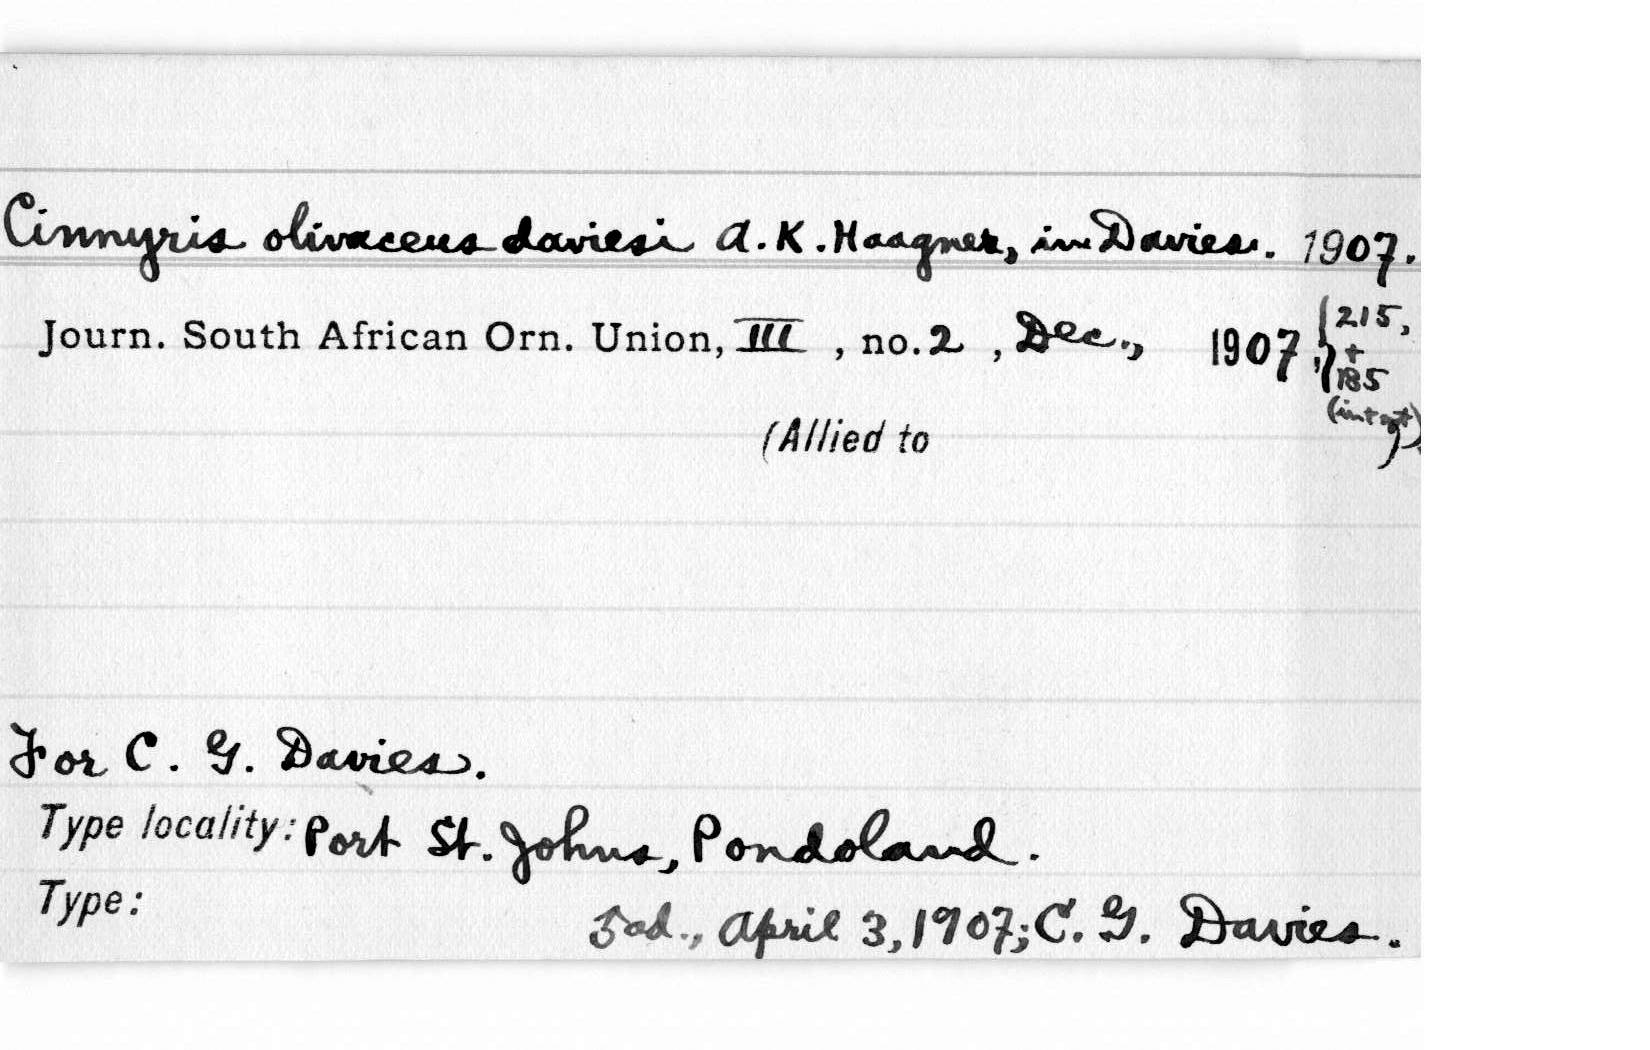 Cinnyris olivaceus daviesi A.K.Haagner, in Davies. 1907.
Journ. South African Orn. Union, III , no.2 , Dec., 1907, {215,
+
185
(in txt)
(Allied to )
For C. G. Davies.
Type locality: Port St. Johns, Pondoland.
Type:
♂ad., April 3, 1907; C. G. Davies.